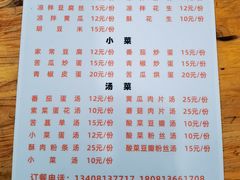 凉拌豆腐丝 15元/份 凉拌花生 12元/份
凉拌黄瓜 12元/份 酥花生 10元/份
胡豆米 15元/份
小菜
家常豆腐 12元/份 番茄炒蛋 15元/份
苦瓜炒蛋 15元/份 青椒炒蛋 15元/份
青椒皮蛋 20元/份 苦瓜烘蛋 20元/份
汤菜
番茄蛋汤 12元/份 黄瓜肉片汤 25元/份
紫菜蛋花汤 10元/份 蘑菇肉片汤 25元/份
苦菖汤 15元/份 酸菜豆瓣汤 15元/份
小菜蛋汤 12元/份 酸菜粉丝汤 15元/份
酥肉粉条汤 25元/份 酸菜豆瓣粉丝汤 15元/份
小菜汤 10元/份
订餐电话: 13408137717 18081366170